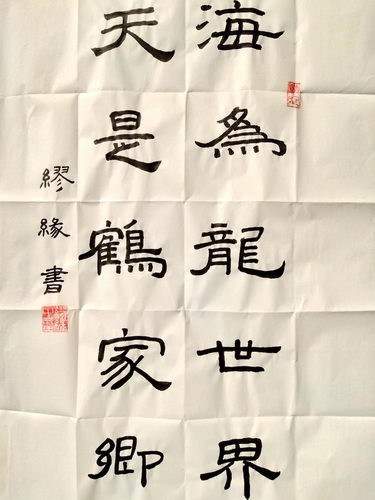 海為龍世界
天是鶴家鄉
繆緣書